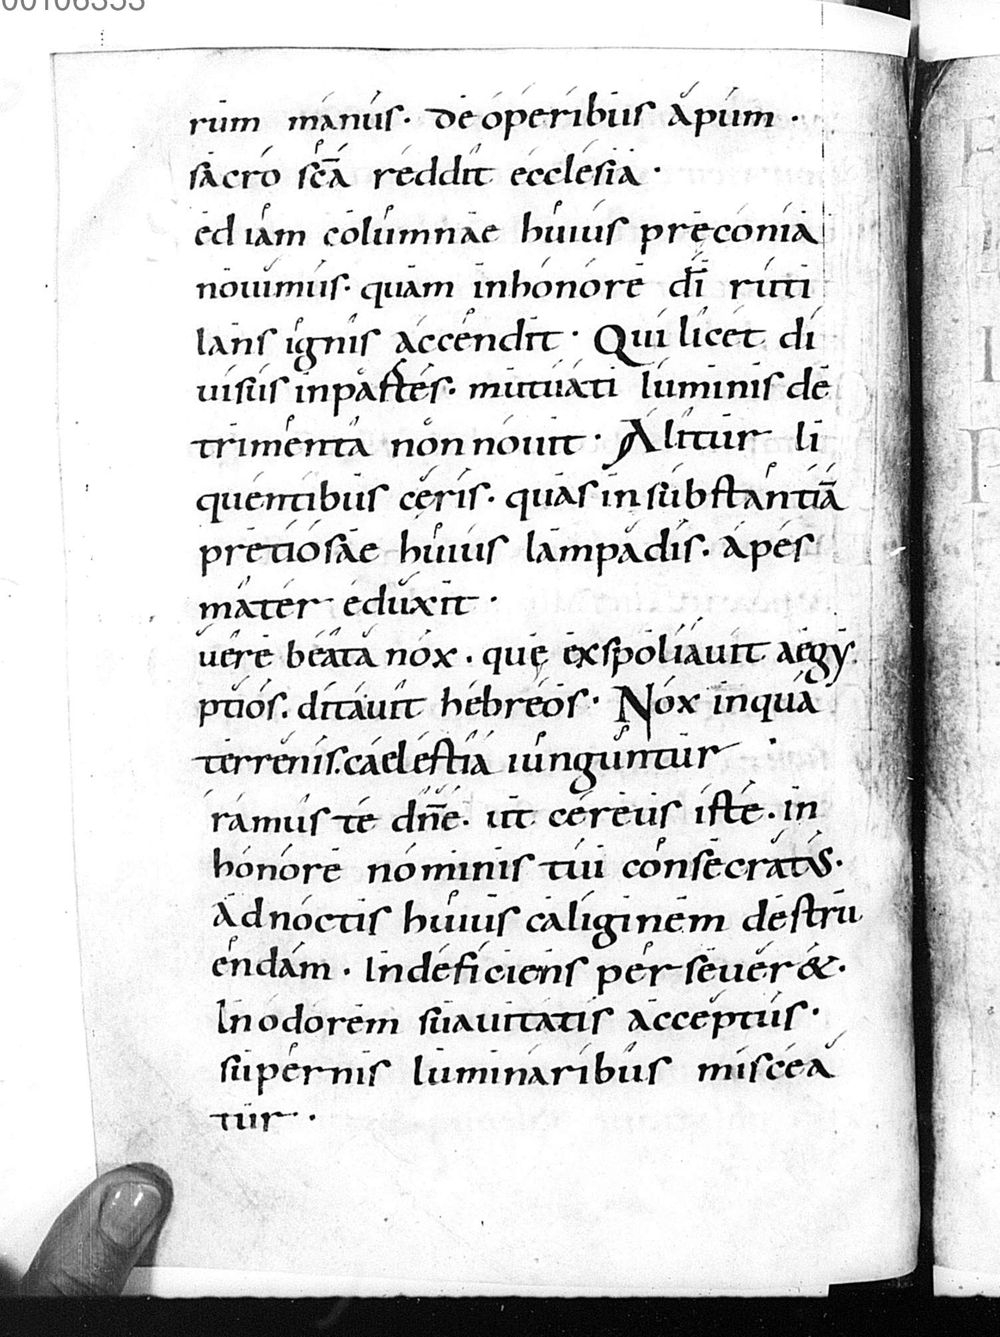 00106353
rum manus. de operibus apum.
sacro scā reddit ecclesia.
ed iam columnae huius pręconia
nouimus. quam inhonore dī ruti
lans ignis accendit. Qui licet di
uisus inpartes. mutuati luminis de
trimenta non nouit. Alitur li
quentibus ceris. quas insubstantiā
pretiosae huius lampadis. apes
mater eduxit.
uere beata nox. quę exspoliauit aegy
ptios. ditauit hebreos. Nox inqua
terrenis. caelestia iunguntur.
ramus te dnē. ut cereus iste. in
honore nominis tui consecratus.
Adnoctis huius caliginem destru
endam. Indeficiens perseuer&.
Inodorem suauitatis acceptus.
supernis luminaribus miscea
tur.